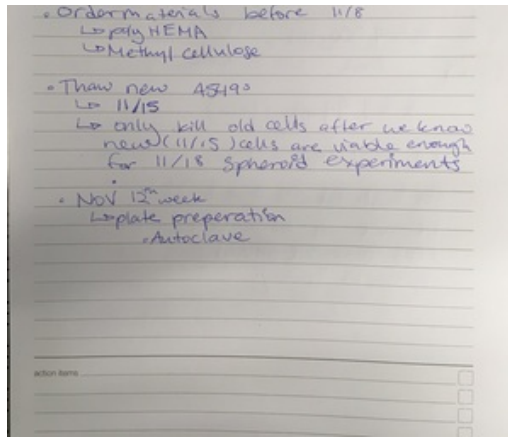 • Order materials before 11/8
↳ poly HEMA
↳ Methyl cellulose
• Thaw new A549s
↳ 11/15
↳ only kill old cells after we know
new (11/15) cells are viable enough
for 11/18 spheroid experiments
• Nov 12th week
↳ plate preperation
• Autoclave
action items